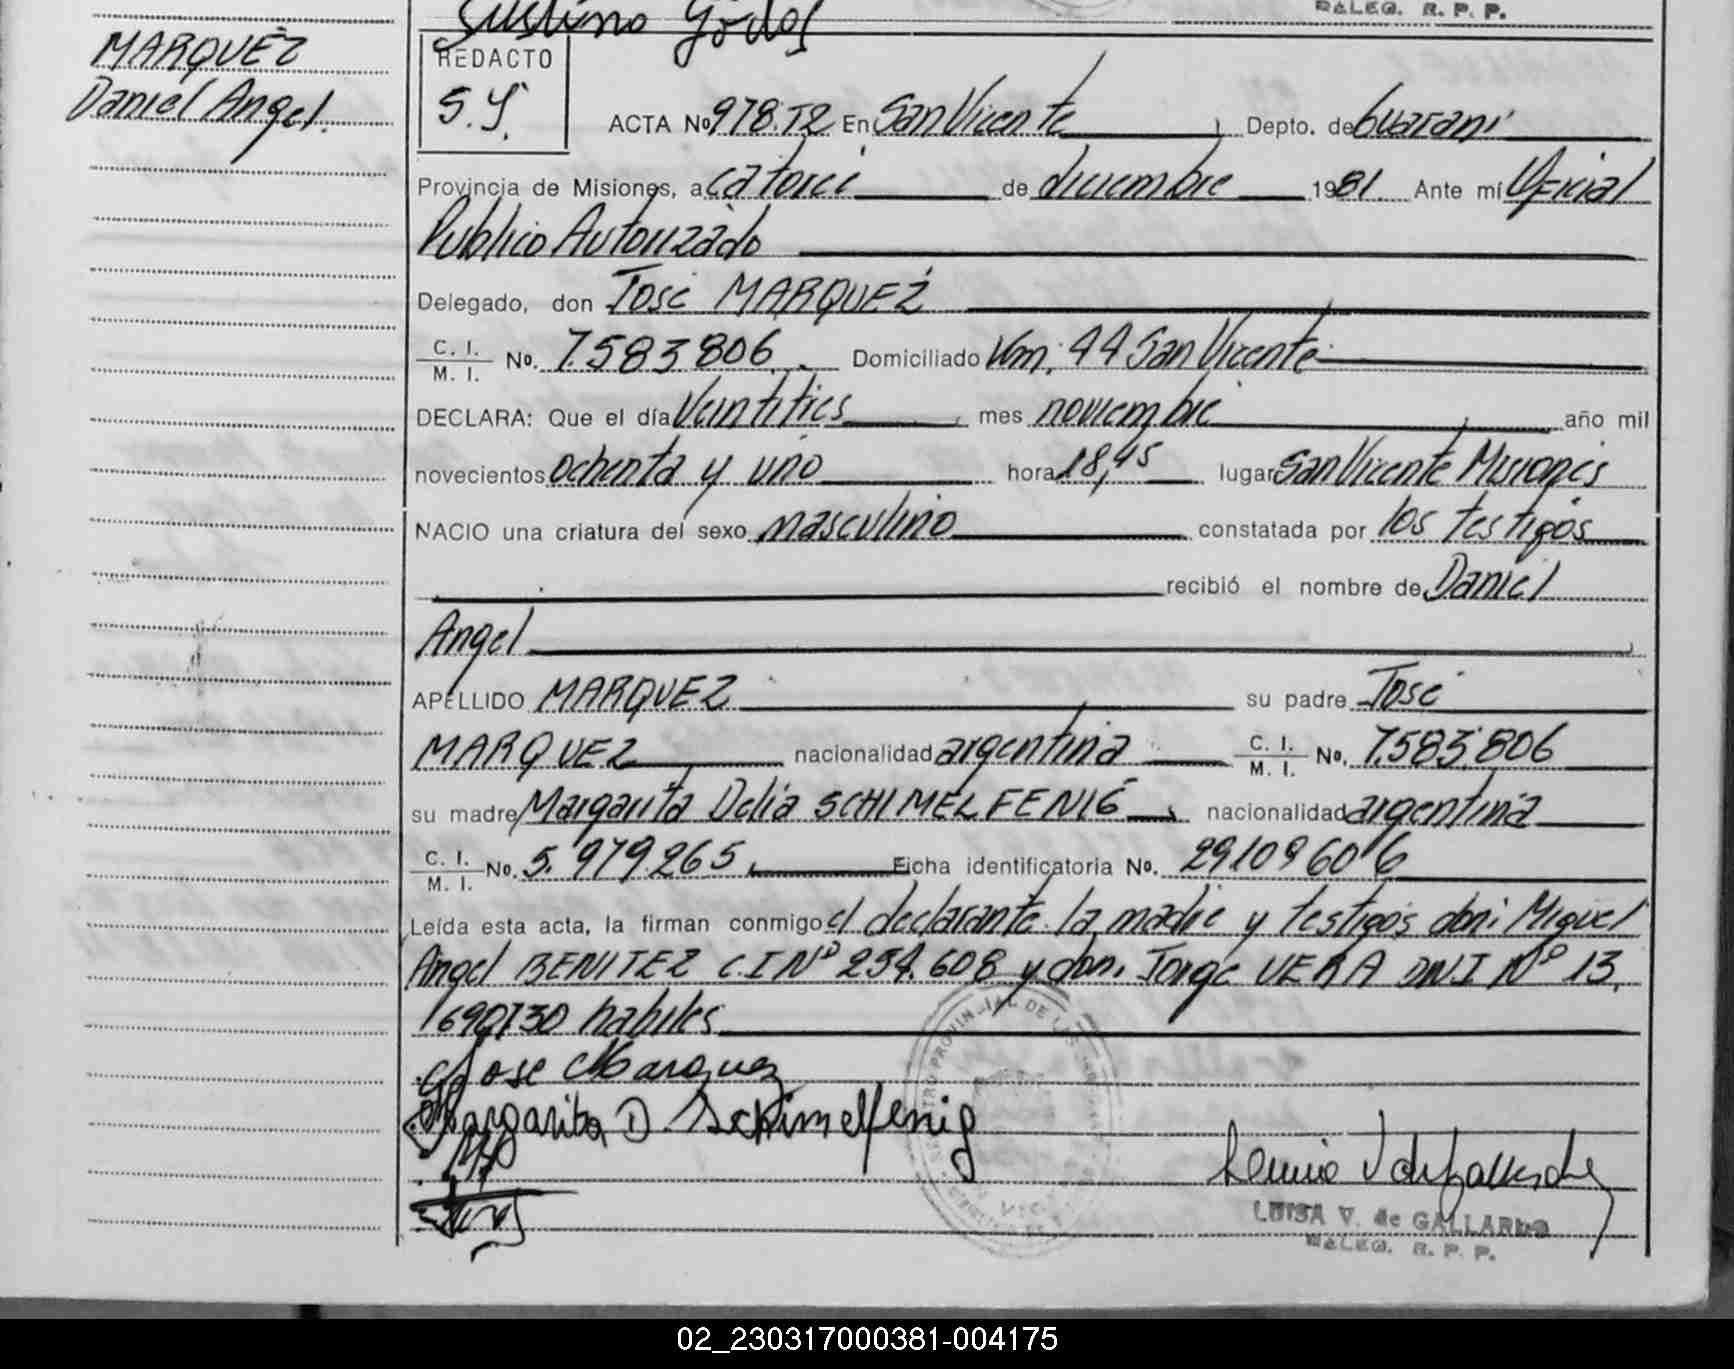 Justino Godoy
DALEG. R. P. P.
MARQUEZ
Daniel Angel.
REDACTO
S.G.
ACTA No 978.T2 En San Vicente, Depto. de Guarani
Provincia de Misiones, a catorce de diciembre 1981. Ante mi Oficial
Publico Autorizado
Delegado, don Jose MARQUEZ
C. I. / M. I. No. 7.583.806. Domiciliado Km. 44 San Vicente
DECLARA: Que el día Veintitres, mes noviembre año mil
novecientos ochenta y uno hora 18,45 lugar San Vicente Misiones
NACIO una criatura del sexo masculino constatada por los testigos
recibió el nombre de Daniel
Angel
APELLIDO MARQUEZ su padre José
MARQUEZ nacionalidad argentina C. I. / M. I. No. 7.583.806
su madre Margarita Delia SCHIMELFENIG, nacionalidad argentina
C. I. / M. I. No. 5.979.265. Ficha identificatoria No. 29109606
Leída esta acta, la firman conmigo el declarante la madre y testigos don: Miguel
Angel BENITEZ C.I Nº 254.608 y don. Jorge VERA DNI Nº 13.
1690730 habiles
Jose Marquez
Margarita D. Schimelfenig
LUISA V. de GALLARDO
DALEG. R. P. P.
02_230317000381-004175